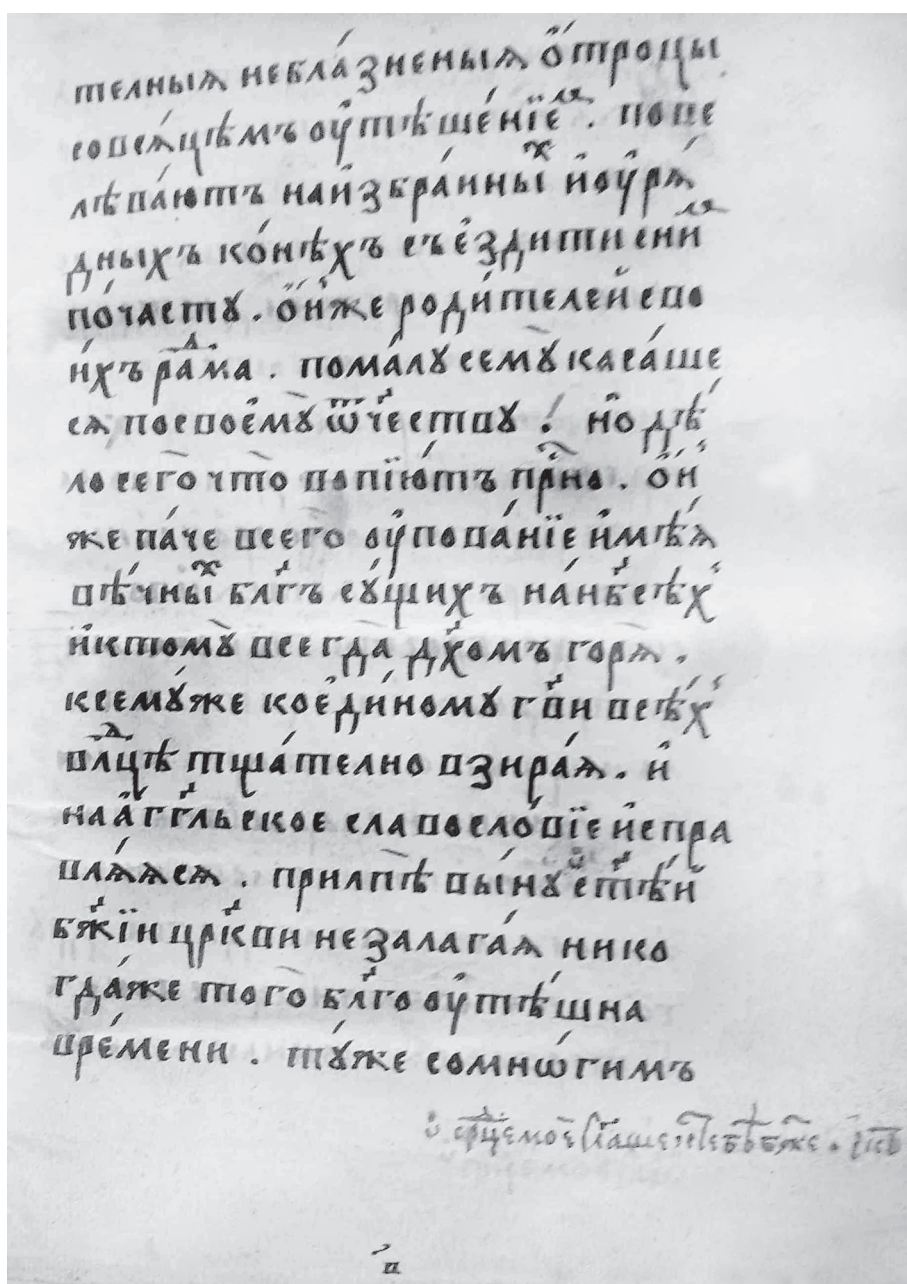 телныѧ неблáзненыѧ ѻ҆́троцы
совсѧ́цѣмъ ᲂу҆тѣшéнїеⷨ҇ . повe
лѣвáютъ наи҆збрáнныⷯ и҆ᲂу҆рѧ́
дныхъ кóнѣхъ съѣ́здитисеи
почáсту . ѻ҆́нже роди́телей сво
и́хъ рáⷣма . помáлу семꙋ̀ касáше
сѧ посвоемꙋ̀ ѿчⷭ҇еству ! но дѣ́
ло сегò чтò вопїю́тъ прⷭ҇но . ѻ҆́н
же пáче всегò ᲂу҆повáнїе и҆мѣ́ѧ
вѣ́чныⷯ бл҃гъ сꙋ́щихъ нáнб҃сѣⷯ
и҆ктомꙋ̀ всегдà дх҃омъ горѧ̀ .
ксемꙋ́же коеди́ному гдⷭ҇ви всѣ́ⷯ
влⷣцѣ тщáтелно взирáѧ . и҆
наáгг҃льское славослóвїе и҆спра
влѧ́ѧсѧ . прилпѣ̀ вы́ну ст҃ѣ́й
бж҃їи цр҃кви незалагáѧ нико
гдáже тогò бл҃гоᲂу҆тѣ́шна
врéмени . тꙋ́же сомнѡ́гимъ
в